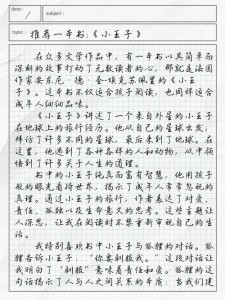 date: /
subject:
topic: 推荐一本书:《小王子》
在众多文学作品中，有一本书以其简单而
深刻的故事打动了无数读者的心，那就是法国
作家安东尼·德·圣-埃克苏佩里的《小王
子》。这本书不仅适合孩子阅读，也同样适合
成年人细细品味。
《小王子》讲述了一个来自外星的小王子
在地球上的旅行经历。他从自己的星球出发，
拜访了许多不同的星球，最后来到了地球。在
这里，他遇到了各种各样的人和动物，从中领
悟到了许多关于人生的道理。
书中的小王子纯真而富有智慧，他用孩子
般的眼光看待世界，揭示了成年人常常忽视的
真理。通过小王子的旅行，作者表达了对爱、
责任、孤独以及生命意义的思考。这些主题让
人深思，让我在阅读时不禁重新审视自己的生
活。
我特别喜欢书中小王子与狐狸的对话。狐
狸告诉小王子：“你要驯服我。”这段对话让
我明白了“驯服”意味着责任和爱。狐狸的这
句话揭示了人与人之间关系的本质，当我们建